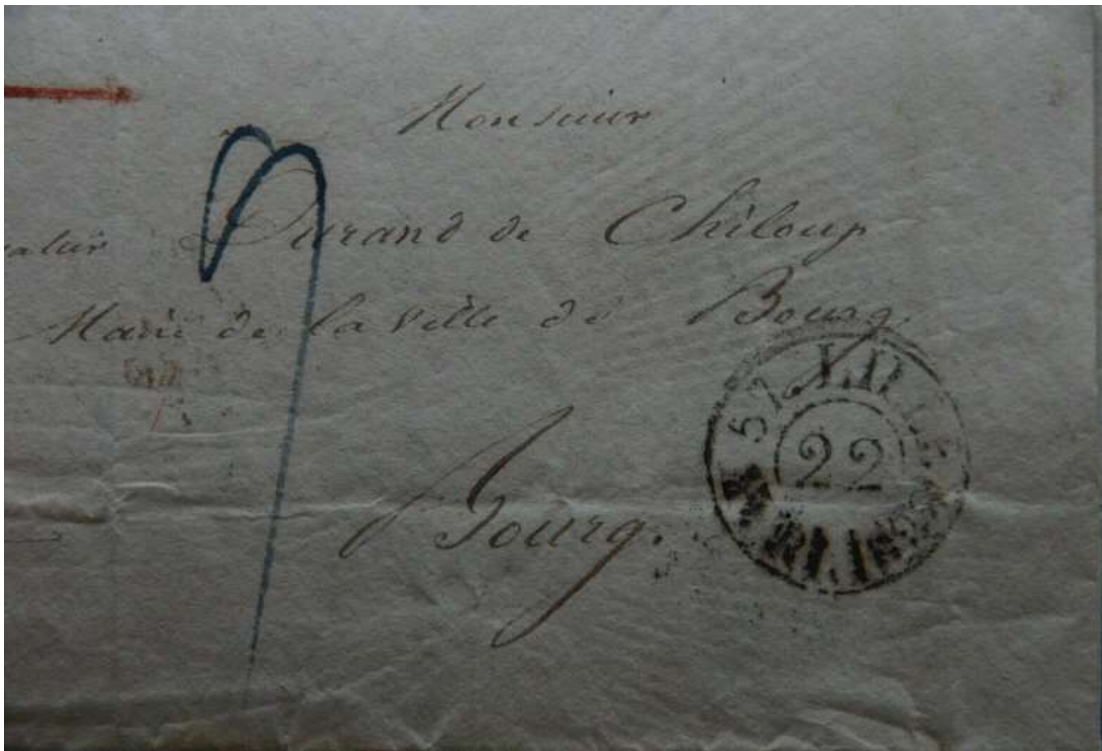 Monsieur
Durand de Chiloup
Maire de la Ville de Bourg.
Bourg.
22